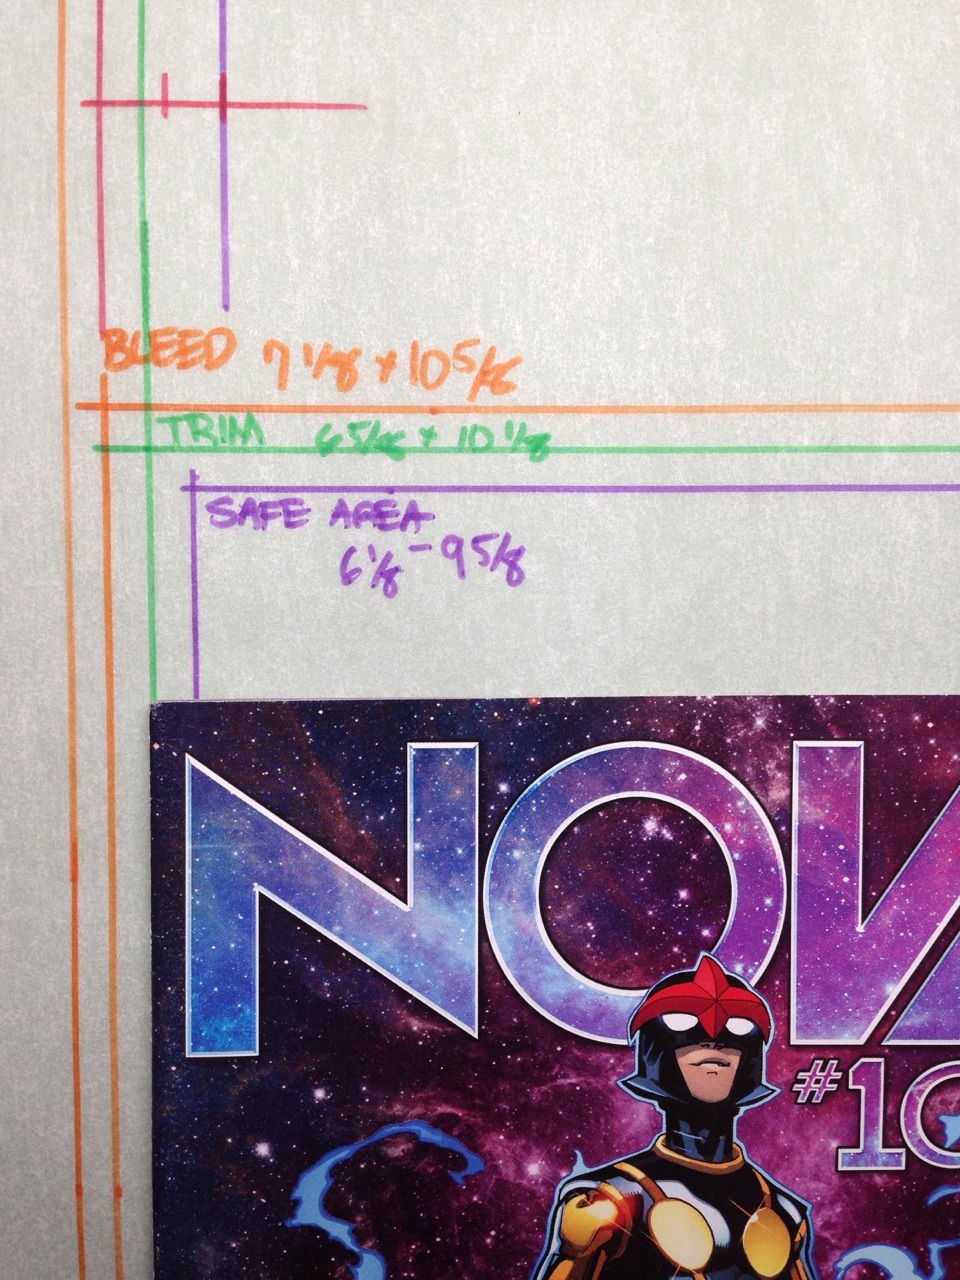 BLEED 7 1/8 x 10 5/8
TRIM 6 5/8 x 10 1/8
SAFE AREA
6 1/8 - 9 5/8
NOVA
#10